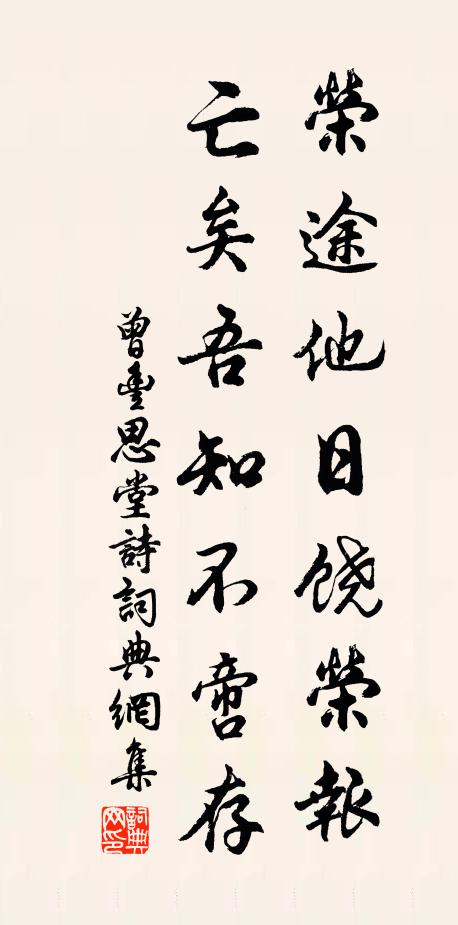 榮途他日饶榮報
亡矣吾知不啻存
曾豐思堂詩詞典網集
詞典網印